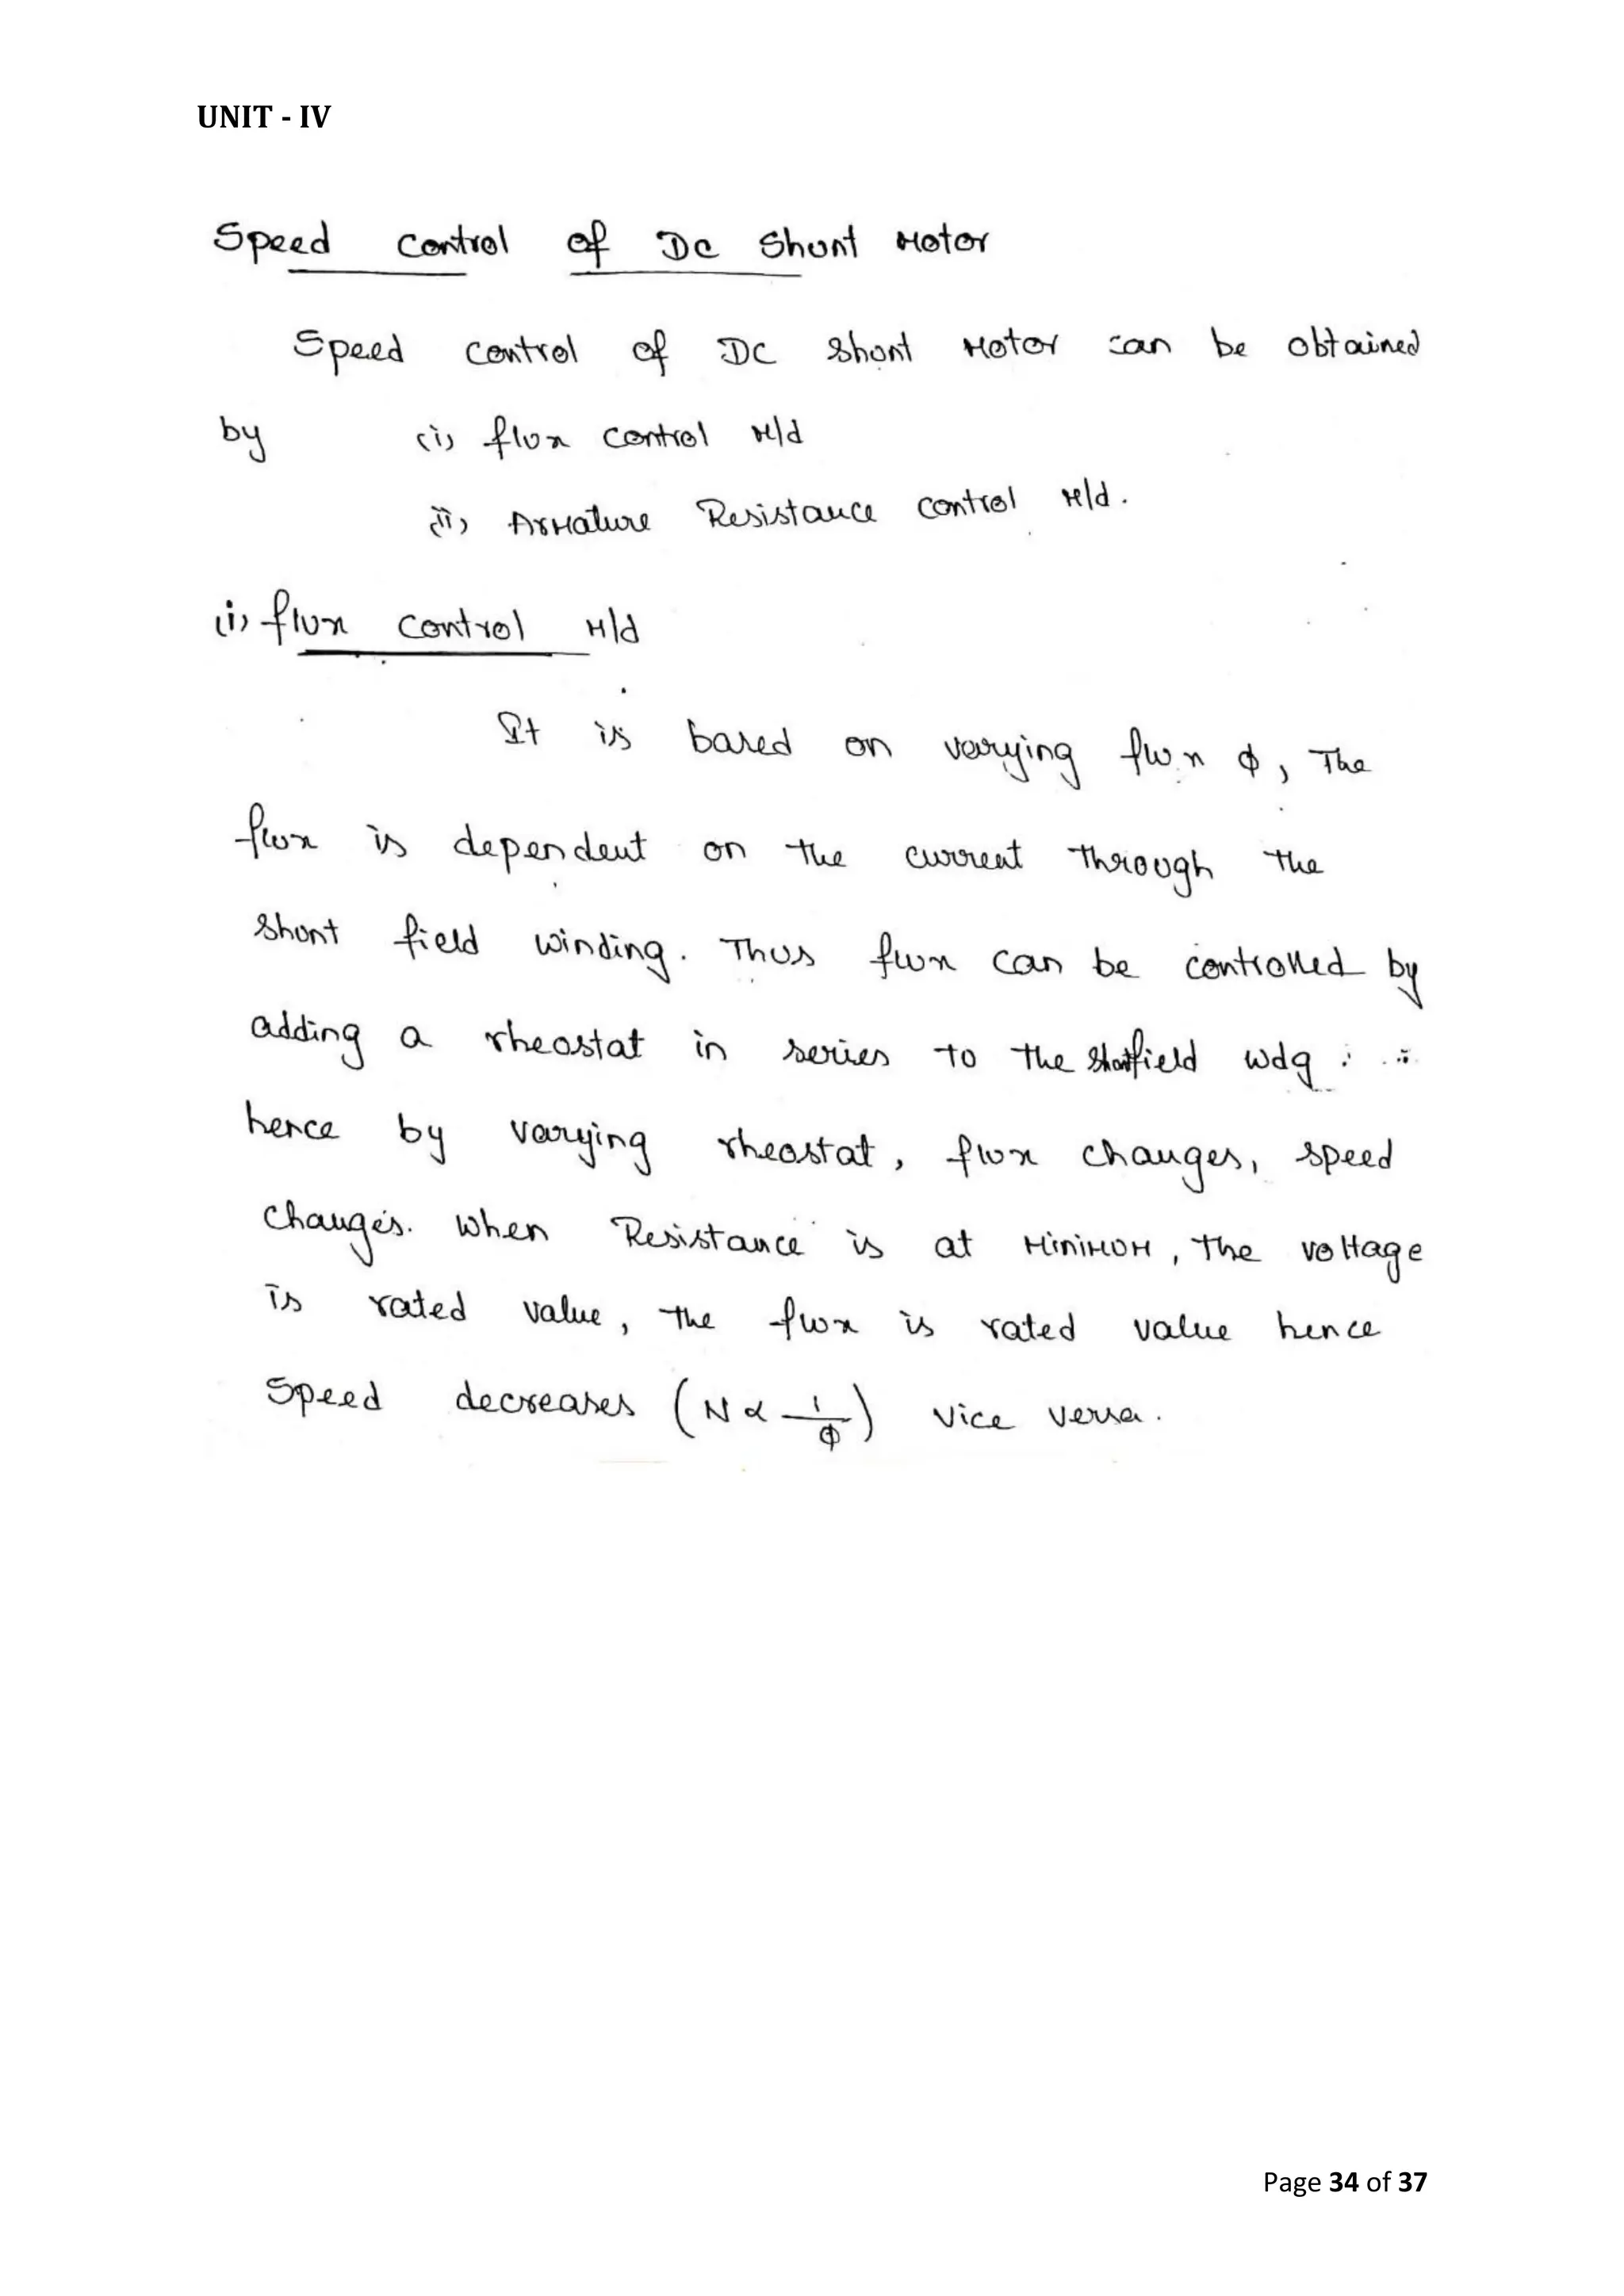 UNIT - IV
Speed control of DC Shunt Motor
Speed control of DC Shunt Motor can be obtained
by (i) flux control M/d
(ii) Armature Resistance control M/d.
(i) flux control M/d
It is based on varying flux ϕ, The
flux is dependent on the current through the
Shunt field winding. Thus flux can be controlled by
adding a rheostat in series to the Shunt field wdg
hence by varying rheostat, flux changes, speed
changes. When Resistance is at Minimum, the voltage
is rated value, the flux is rated value hence
Speed decreases (N ∝ 1/ϕ) vice versa.
Page 34 of 37